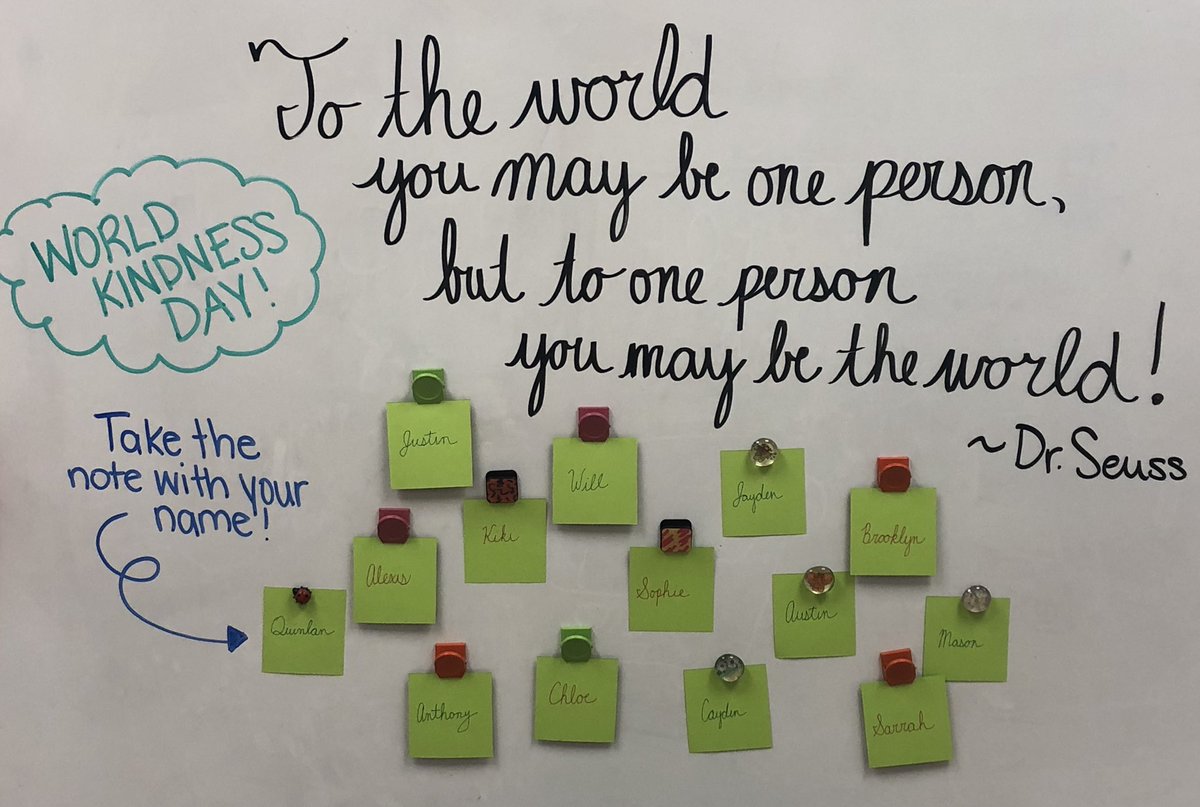 To the world
you may be one person,
but to one person
you may be the world!
~Dr. Seuss
WORLD
KINDNESS
DAY!
Take the
note with your
name!
Justin
Will
Kiki
Jayden
Brooklyn
Alexis
Sophie
Austin
Quinlan
Mason
Anthony
Chloe
Cayden
Sarrah